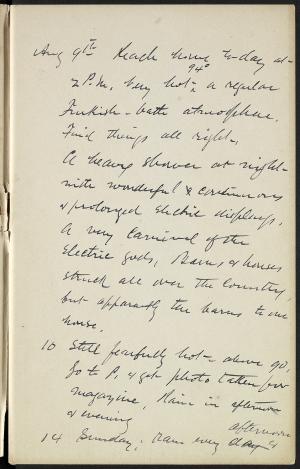 Aug 9th Reach home to-day at
2 P.M. Very hot - 94° a regular
Turkish-bath atmosphere.
Find things all right.
A heavy shower at night
with wonderful & continuous
& prolonged electric displays.
A very Carnival of the
electric gods, Barns & houses
struck all over the country,
but apparently ten barns to one
house.
10 Still fearfully hot - above 90,
Go to P. & get photo taken for
magazine, Rain in afternoon
& evening
14 Sunday, rain every day &
afternoon